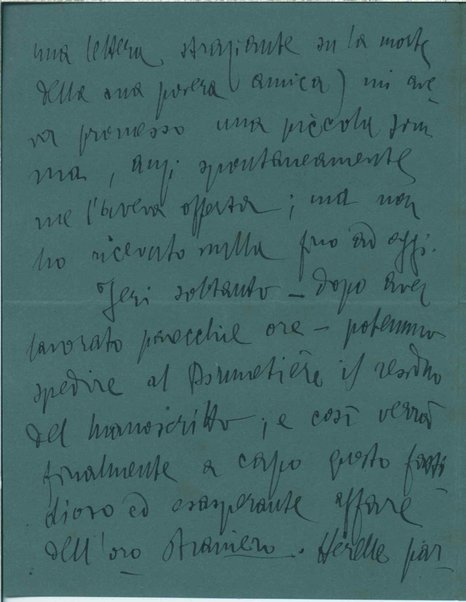 una lettera straziante su la morte
della sua povera amica) mi ave-
va promesso una piccola som-
ma, anzi spontaneamente
me l'aveva offerta; ma non
ho ricevuto nulla fino ad oggi.
Jeri soltanto – dopo aver
lavorato parecchie ore – potemmo
spedire al Brunetière il residuo
del manoscritto; e così verrà
finalmente a capo questo fasti-
dioso ed esasperante affare
dell'oro straniero. Hérelle par